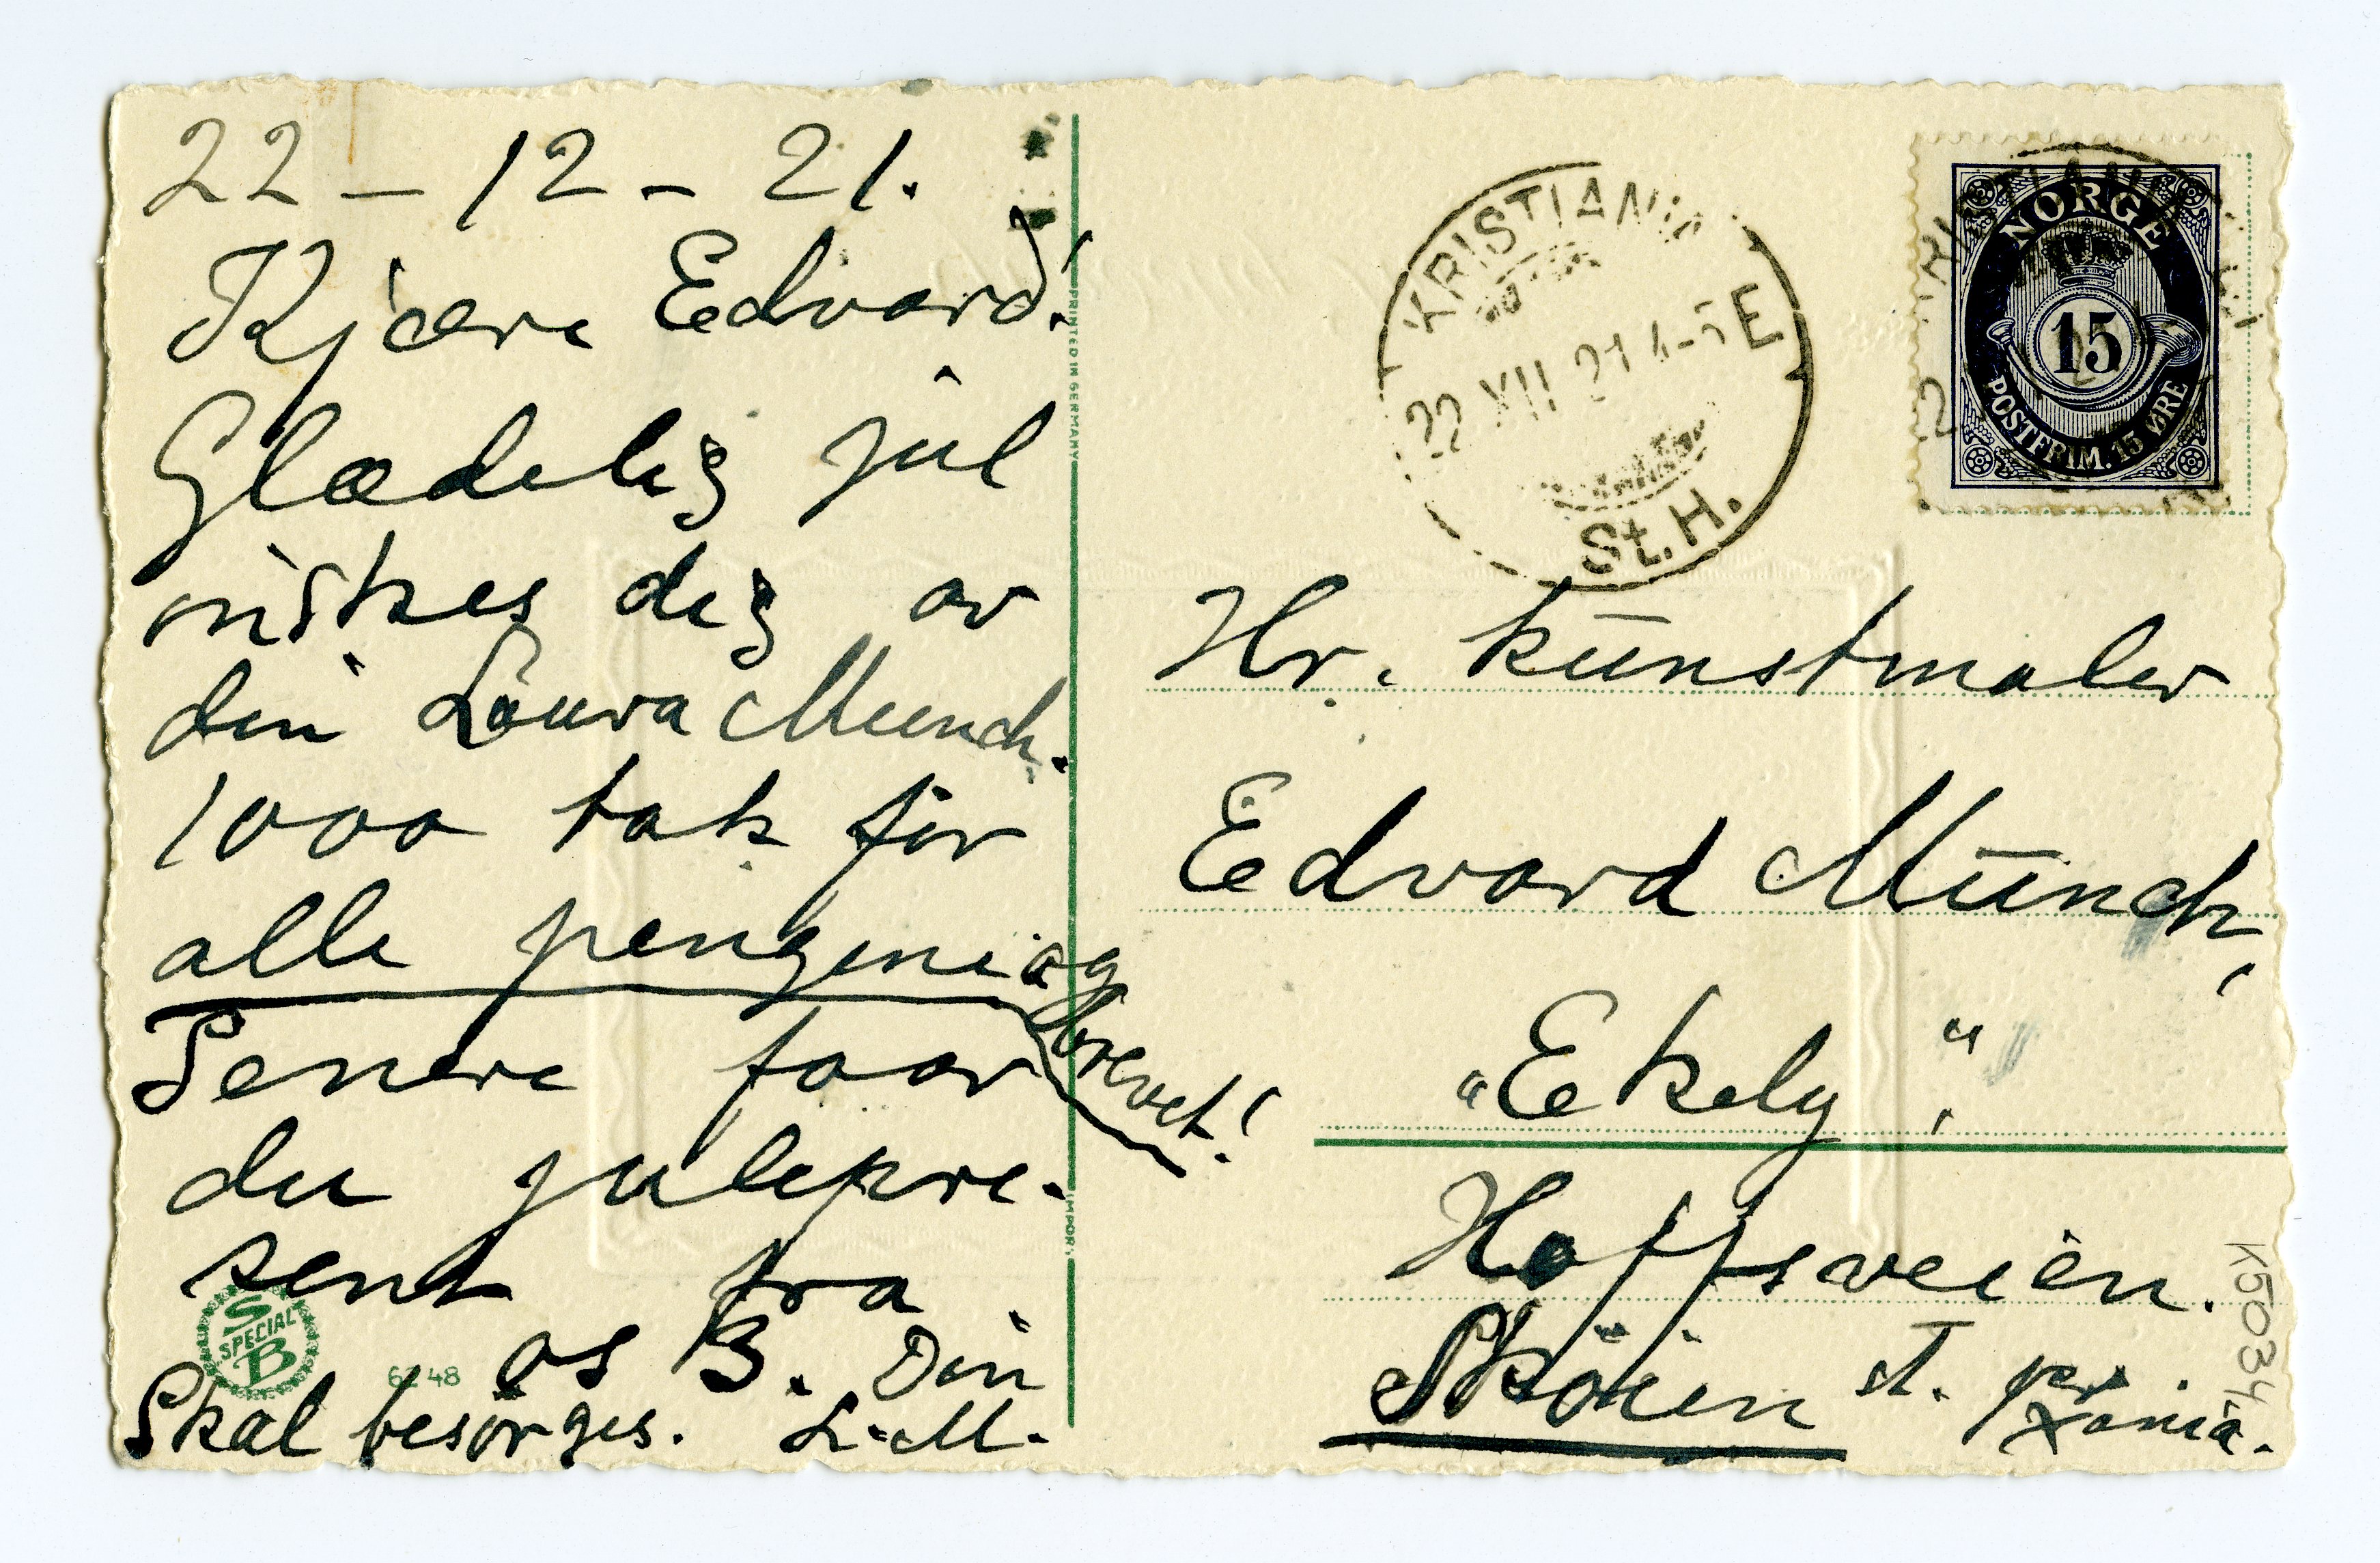 22 – 12 – 21.
Kjære Edvard!
Glædelig jul
ønskes dig av
din Laura Munch.
1000 tak for
alle pengene og
brevet!
Senere faar
du julepre-
sent fra
os 3. Din
Skal besørges. L. M.
PRINTED IN GERMANY
IMPORT
S SPECIAL B
6248
KRISTIANIA
22 XII 21 4-5 E
St. H.
NORGE
15
POSTFRIM. 15 ØRE
Hr. kunstmaler
Edvard Munch,
„Ekely“,
Hoffsveien.
Skøien st. per
Xania.
K5034